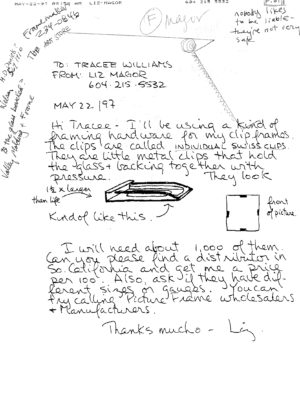 MAY-22-97 LIZ MAGOR
Framemakers
234-0646
THE ART STORE
F Magor
nobody likes
to be liable -
they're not very
safe.
TO: TRACEE WILLIAMS
FROM: LIZ MAGOR
604·215·5532
MAY 22/97
Hi Tracee - I'll be using a kind of
framing hardware for my clip frames.
The clips are called INDIVIDUAL SWISS CLIPS.
They are little metal clips that hold
the glass + backing together with
pressure. They look
1½ x larger
than life
Kind of like this.
front
of picture
I will need about 1,000 of them.
Can you please find a distributor in
So. California and get me a price
per 100. Also, ask if they have dif-
ferent sizes or gauges. You can
try calling Picture Frame wholesalers
+ Manufacturers.
Thanks mucho - Liz.